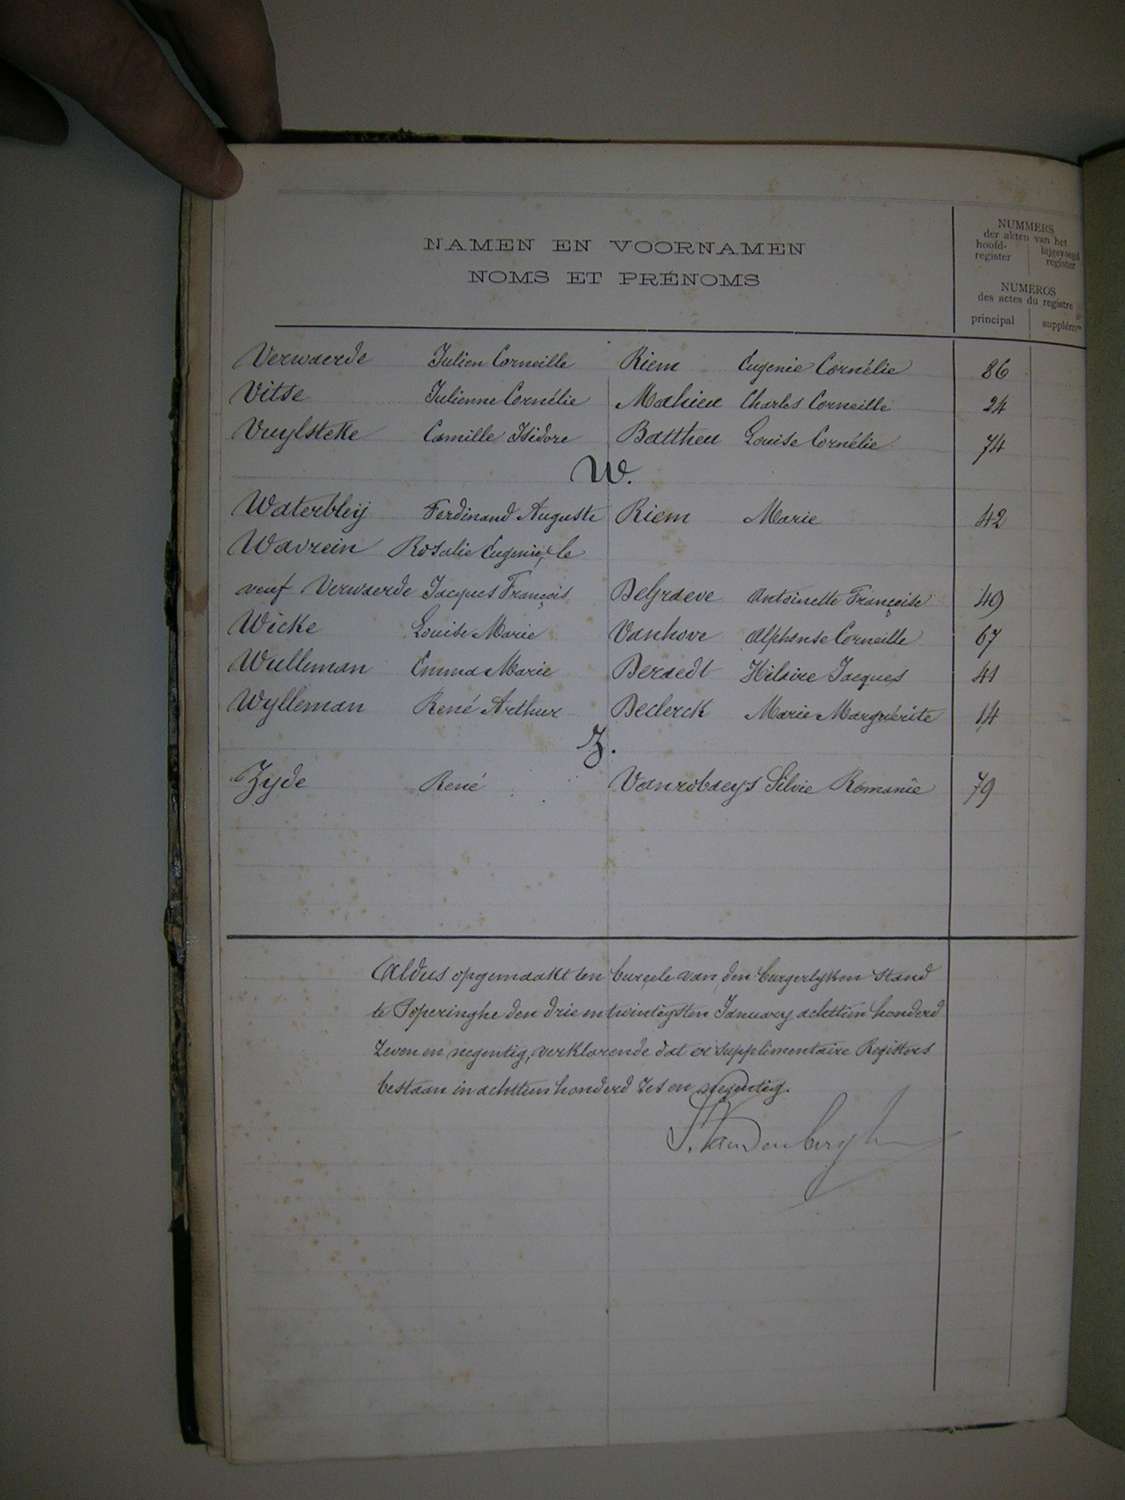 NAMEN EN VOORNAMEN
NOMS ET PRÉNOMS
NUMMERS
der akten van het
hoofd-register
bijgevoegd register
NUMÉROS
des actes du registre
principal
supplémre
Verwaerde Julien Corneille Riem Eugenie Cornélie 86
Vitse Julienne Cornélie Mahieu Charles Corneille 24
Vuylsteke Camille Isidore Battheu Louise Cornélie 74
W.
Waterbley Ferdinand Auguste Riem Marie 42
Wavrein Rosalie Eugenie, le
veuf Verwaerde Jacques François Degraeve Antoinette Françoise 49
Wicke Louise Marie Vanhove Alphonse Corneille 67
Wulleman Emma Marie Beraedt Hilaire Jacques 41
Wylleman René Arthur Declerck Marie Marguérite 14
Z.
Zyde René Vanrobaeys Silvie Romanie 79
Aldus opgemaakt ten bureele van den burgerlyken Stand
te Poperinghe den drie en twintigsten January achttien honderd
zeven en negentig, verklarende dat er supplimentaire Registers
bestaan in achttien honderd zes en negentig.
Vandenberghe